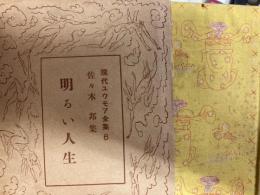 現代ユウモア全集 6
佐々木邦集
明るい人生